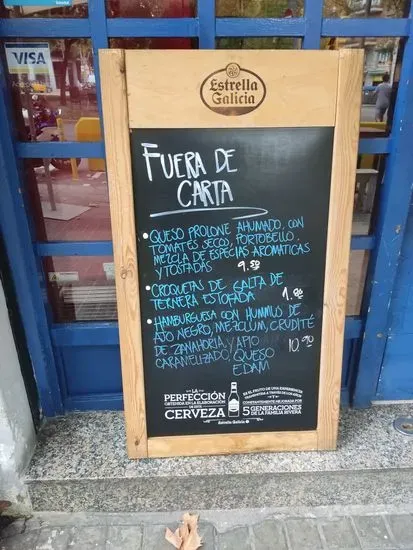 VISA
Estrella
Galicia
FUERA DE
CARTA
• QUESO PROLONE AHUMADO, CON
TOMATES SECO, PORTOBELLO,
MEZCLA DE ESPECIAS AROMATICAS
Y TOSTADAS 9.50
• CROQUETAS DE GALTA DE
TERNERA ESTOFADA 1.80
• HAMBURGUESA CON HUMMUS DE
AJO NEGRO, MEZCLUM, CRUDITÉ
DE ZANAHORIA Y APIO 10.90
CARAMELIZADO, QUESO
EDAM
LA
PERFECCIÓN
OBTENIDA EN LA ELABORACIÓN
DE ESTA
CERVEZA
ES EL FRUTO DE UNA EXPERIENCIA
TRANSMITIDA A TRAVÉS DE LOS AÑOS
Y
CONSTANTEMENTE MEJORADA POR
5 GENERACIONES
DE LA FAMILIA RIVERA
Estrella Galicia